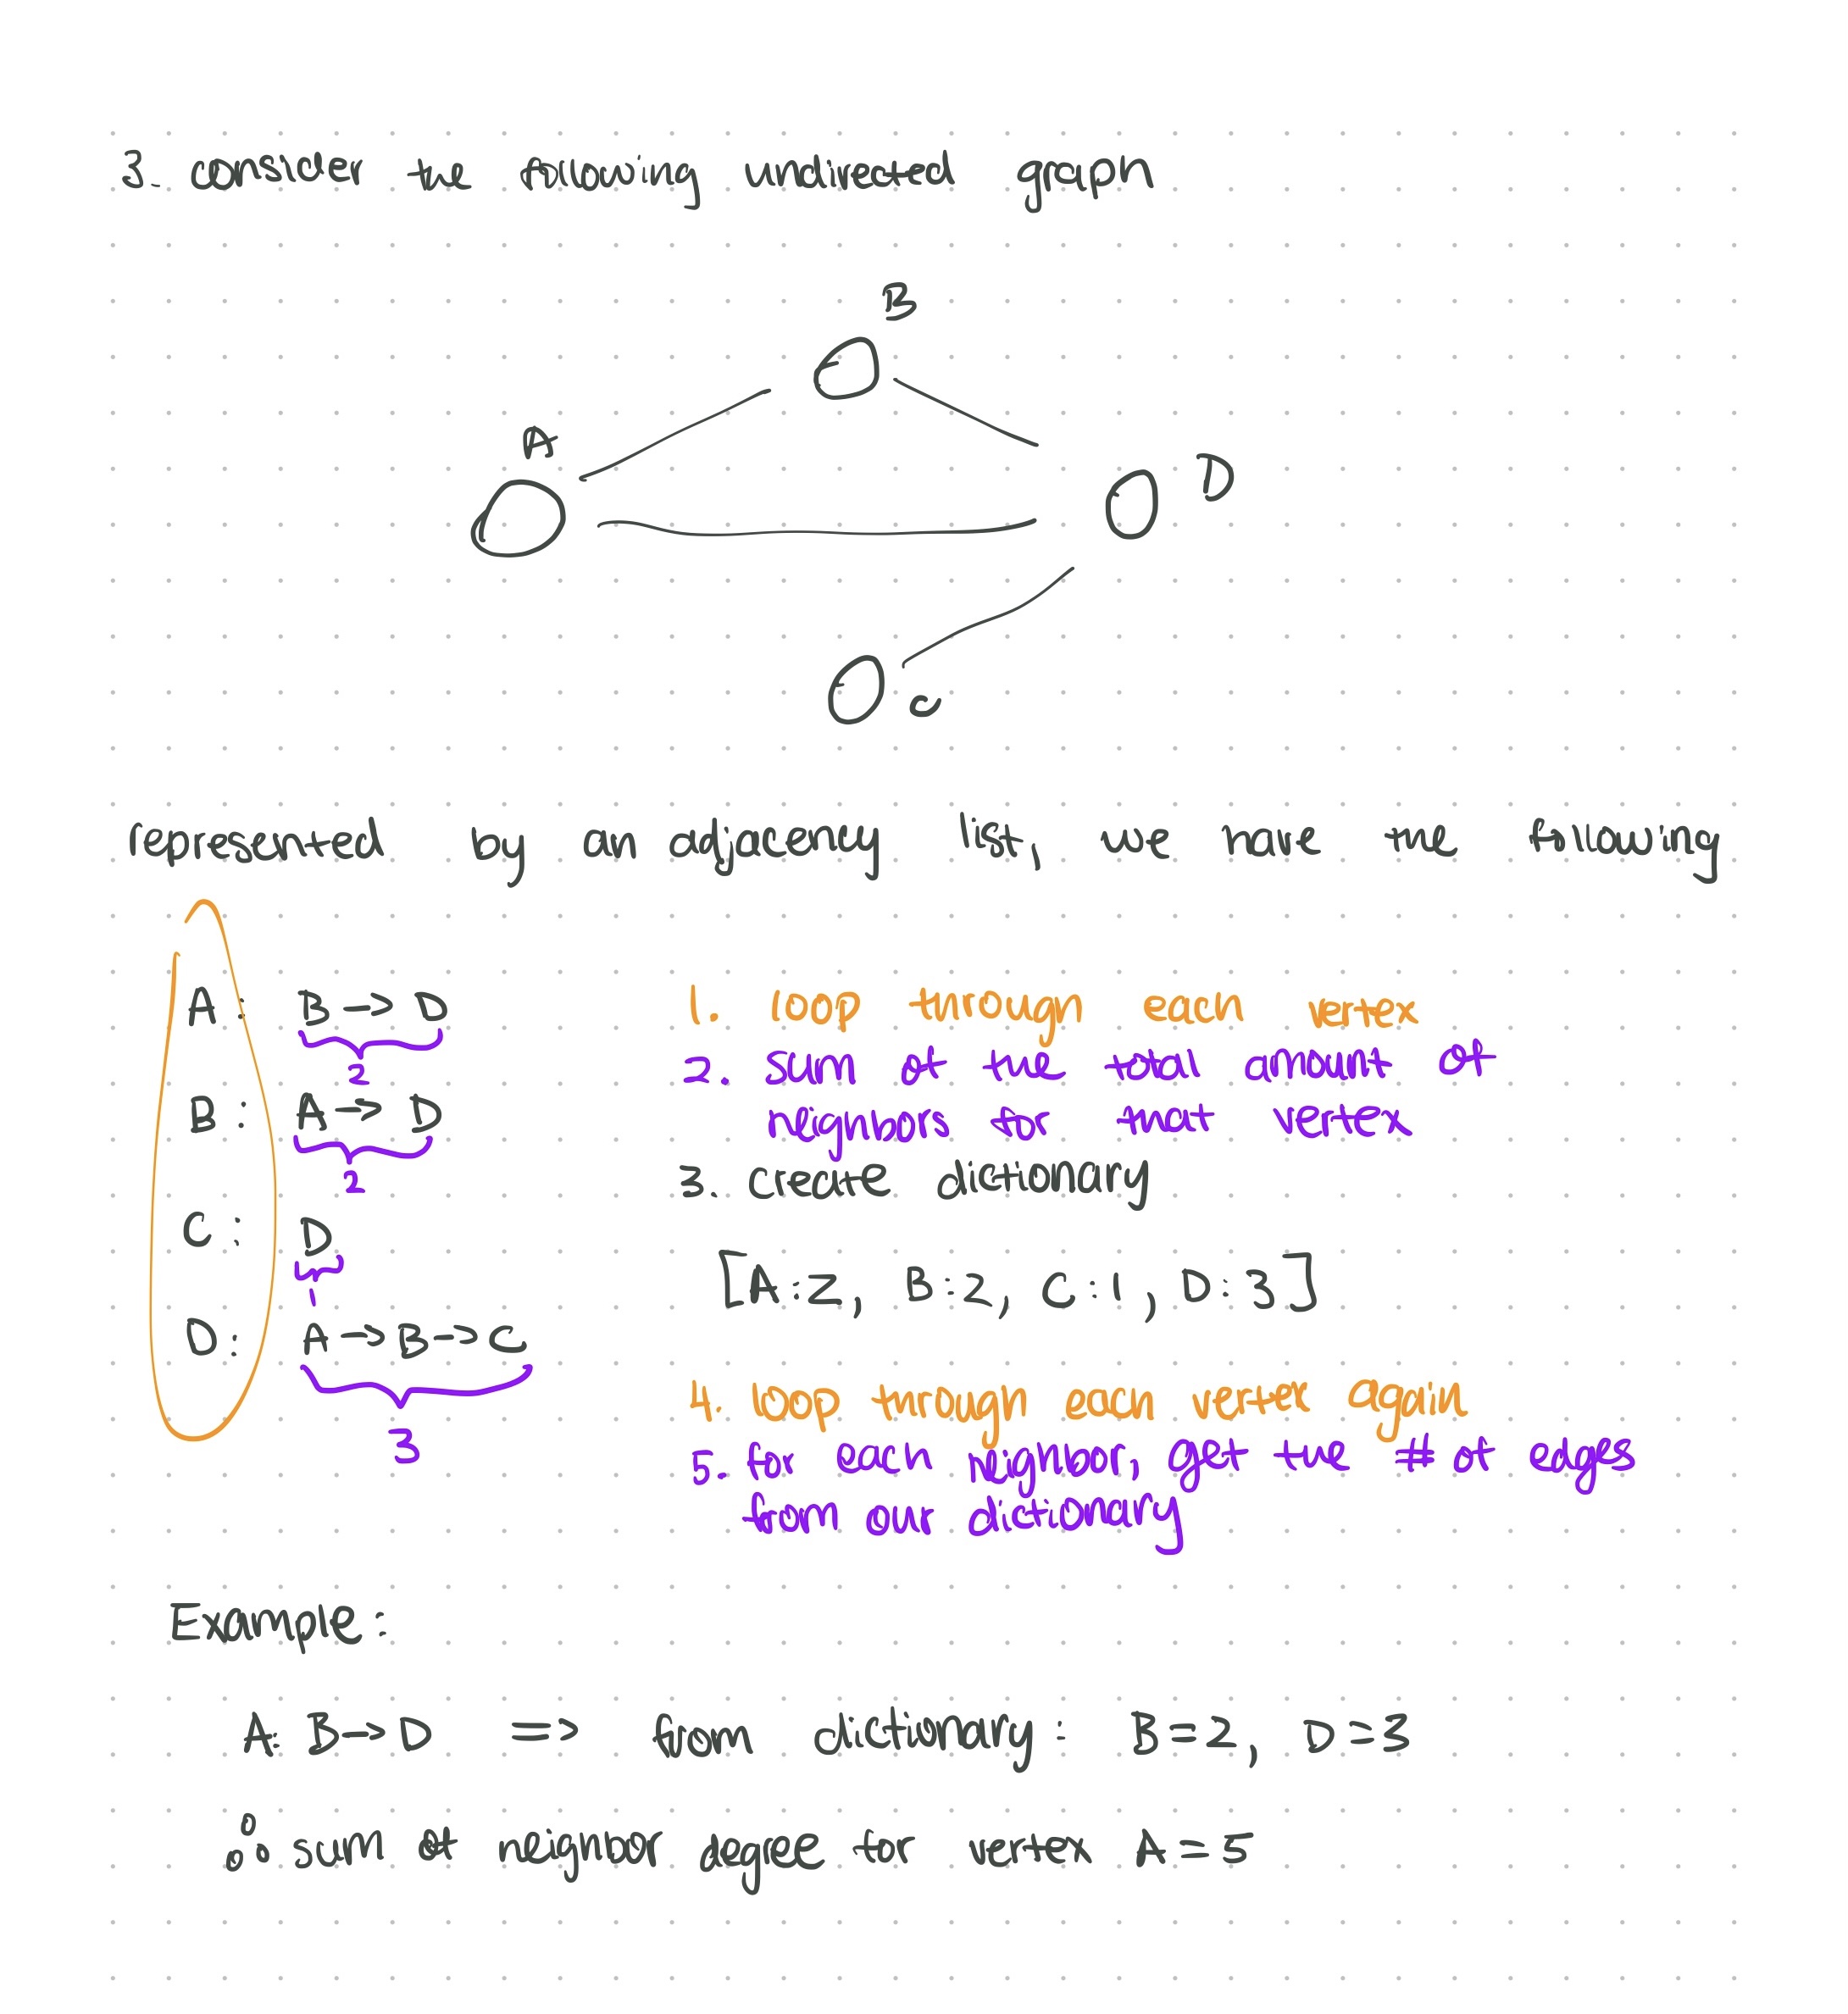 3. consider the following undirected graph
B
A
D
C
represented by an adjacency list, we have the following
A: B -> D
2
B: A -> D
2
C: D
1
D: A -> B -> C
3
1. loop through each vertex
2. sum of the total amount of
neighbors for that vertex
3. create dictionary
[A:2, B:2, C:1, D:3]
4. loop through each vertex again
5. for each neighbor, get the # of edges
from our dictionary
Example:
A: B->D => from dictionary: B=2, D=3
∴ sum of neighbor degree for vertex A=5